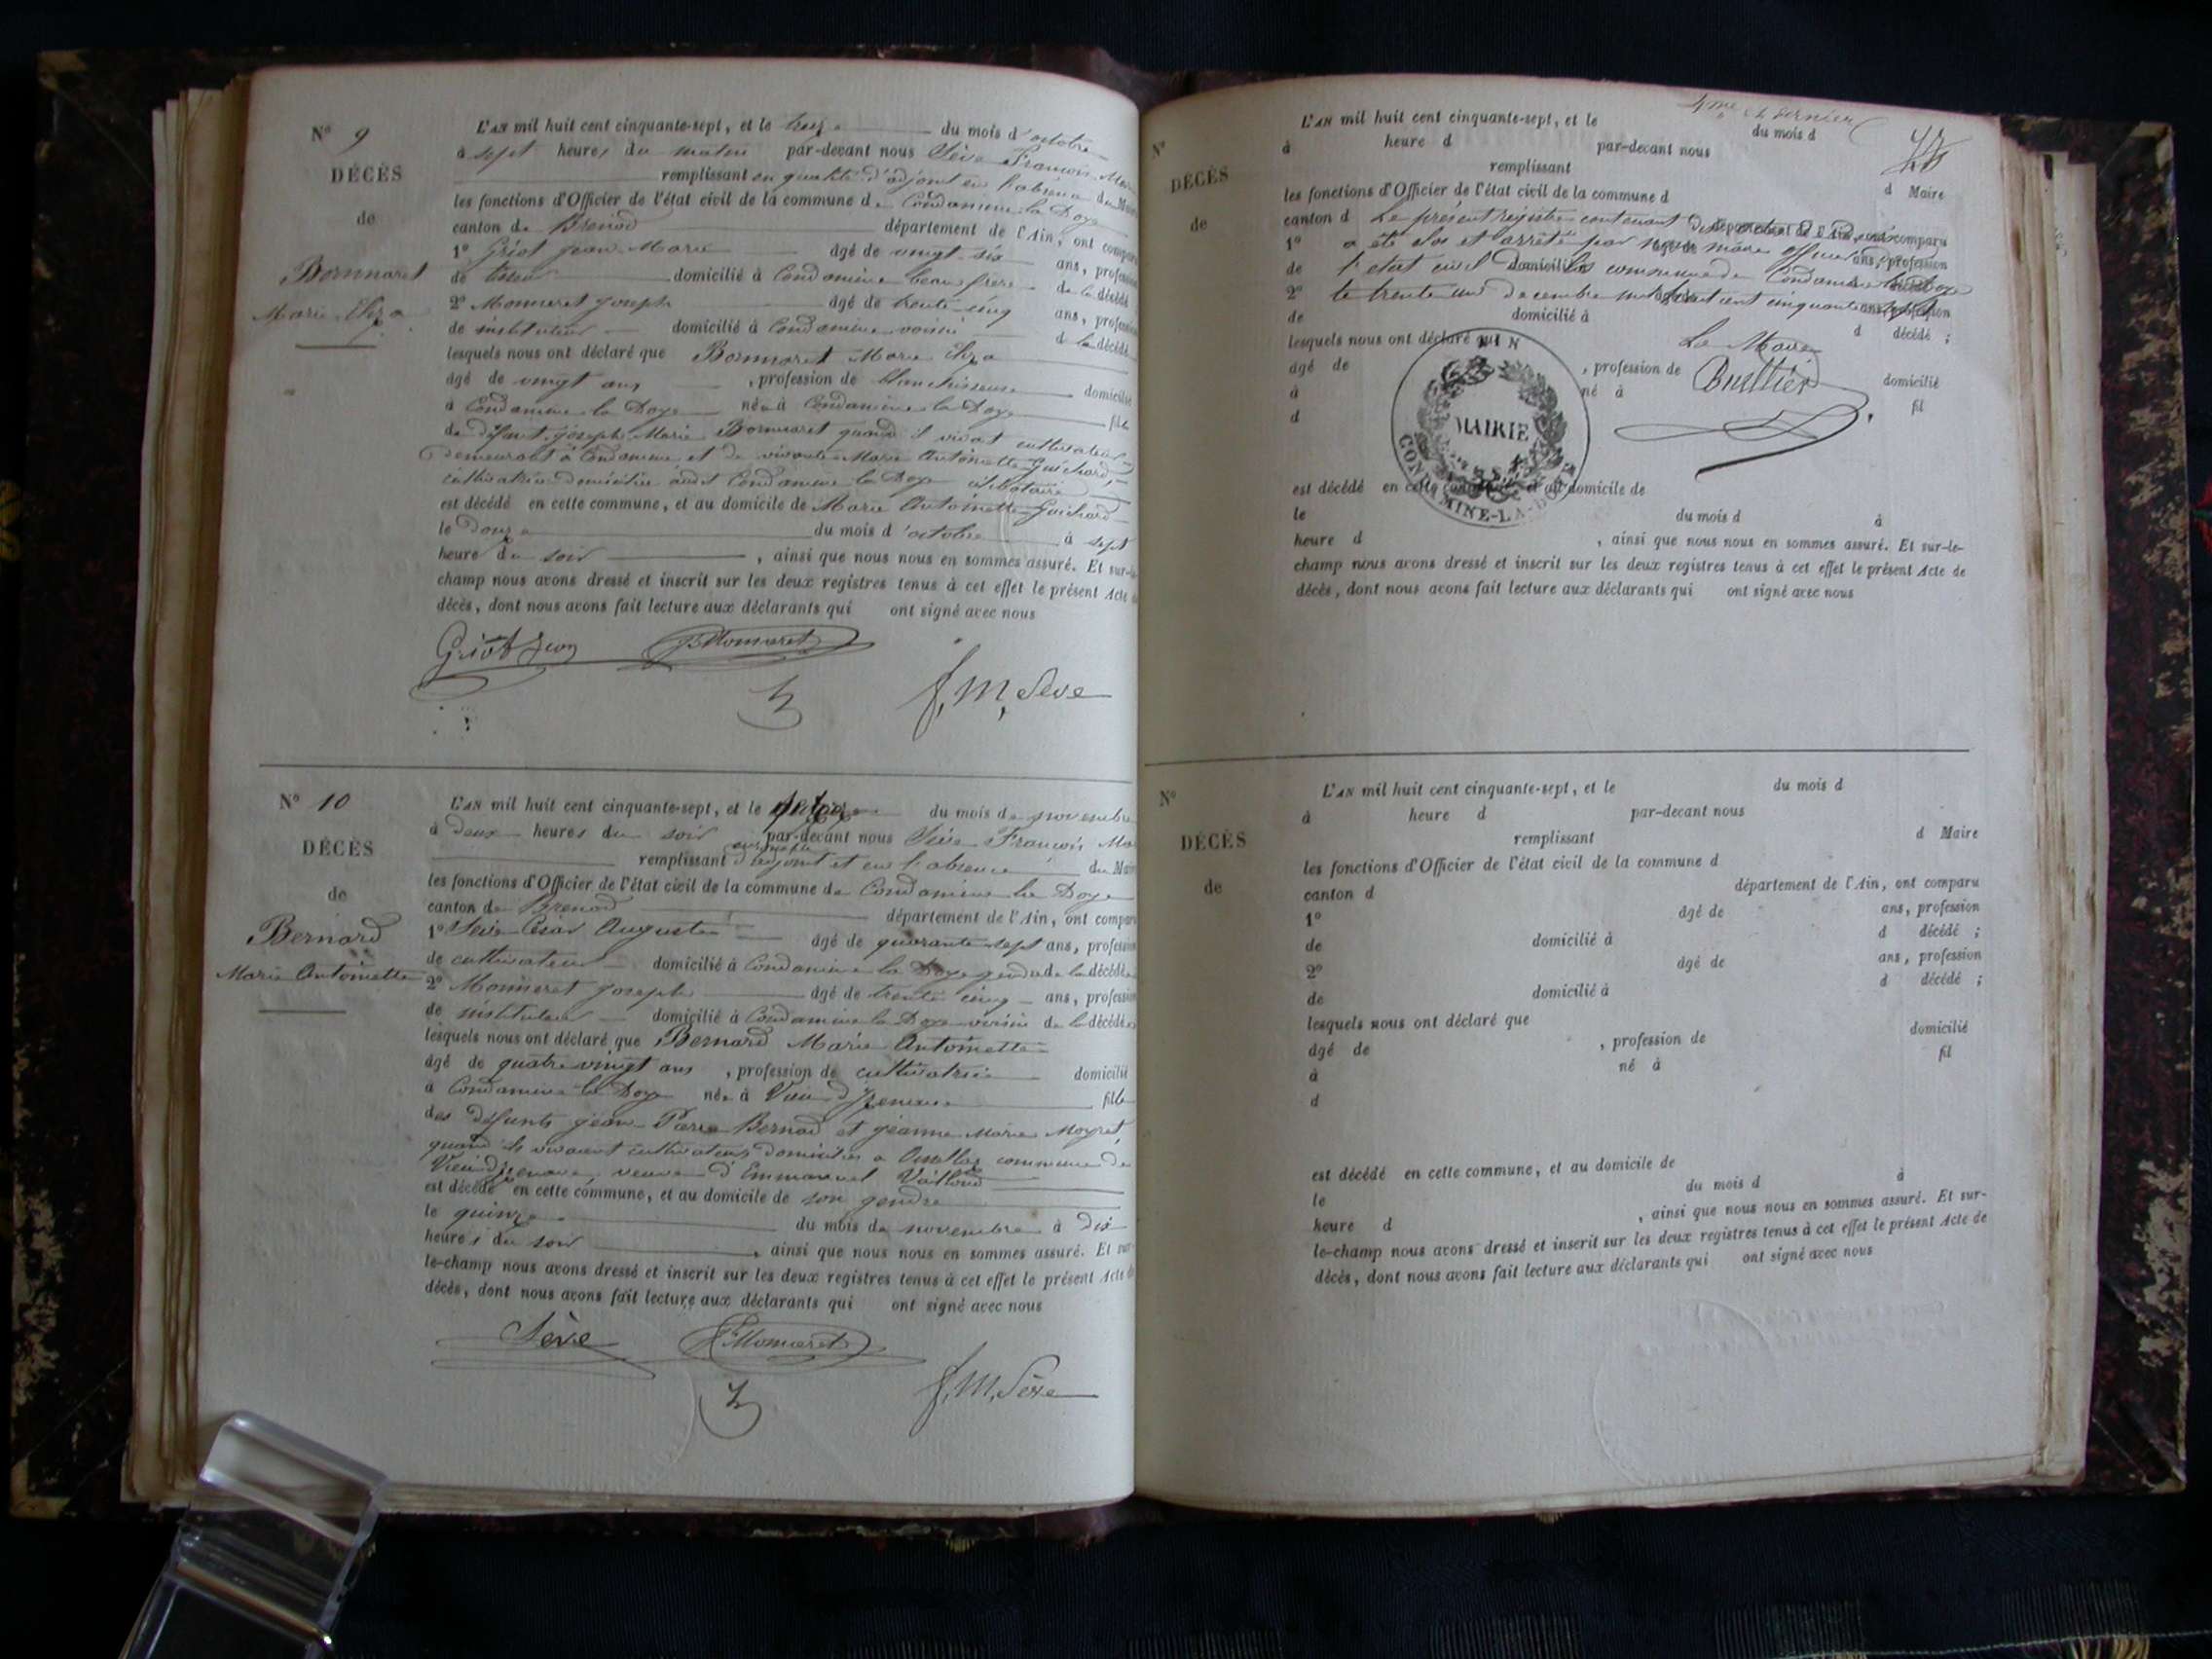 N° 9
DÉCÈS
de
Bonnaret
Marie Eliza
L'AN mil huit cent cinquante-sept, et le treize du mois d'octobre
à sept heures du matin par-devant nous Sève François Marie
remplissant en qualité d'adjoint en l'absence du Maire
les fonctions d'Officier de l'état civil de la commune de Condamine la Doye
canton de Brenod département de l'Ain, ont comparu
1° Griot Jean Marie âgé de vingt six ans, profession
de domicilié à Condamine beau frère de la décédée
2° Monneret Joseph âgé de trente cinq ans, profession
de instituteur domicilié à Condamine voisin de la décédée
lesquels nous ont déclaré que Bonnaret Marie Eliza
âgé de vingt ans, profession de blanchisseuse domicilié
à Condamine la Doye née à Condamine la Doye fille
de défunt Joseph Marie Bonnaret quand il vivait cultivateur
demeurant à Condamine et de vivante Marie Antoinette Guichard,
cultivatrice domiciliée audit Condamine la Doye célibataire
est décédé en cette commune, et au domicile de Marie Antoinette Guichard
le douze du mois d'octobre à sept
heure du soir, ainsi que nous nous en sommes assuré. Et sur-le-
champ nous avons dressé et inscrit sur les deux registres tenus à cet effet le présent Acte de
décès, dont nous avons fait lecture aux déclarants qui ont signé avec nous
Griot Jean Monneret
F. M. Sève
N° 10
DÉCÈS
de
Bernard
Marie Antoinette
L'AN mil huit cent cinquante-sept, et le du mois de novembre
à deux heures du soir par-devant nous Sève François Marie
remplissant d'adjoint et en l'absence du Maire
les fonctions d'Officier de l'état civil de la commune de Condamine la Doye
canton de Brenod département de l'Ain, ont comparu
1° Sève César Auguste âgé de quarante sept ans, profession
de cultivateur domicilié à Condamine la Doye gendre de la décédée
2° Monneret Joseph âgé de trente cinq ans, profession
de instituteur domicilié à Condamine la Doye voisin de la décédée
lesquels nous ont déclaré que Bernard Marie Antoinette
âgé de quatre vingt ans, profession de cultivatrice domicilié
à Condamine la Doye née à Vieu d'Izenave fille
des défunts Jean Pierre Bernard et Jeanne Marie Moyret,
quand ils vivaient cultivateurs domiciliés a commune de
Vieu d'Izenave, veuve d'Emmanuel Vaillond
est décédé en cette commune, et au domicile de son gendre
le quinze du mois de novembre à dix
heures du soir, ainsi que nous nous en sommes assuré. Et sur-
le-champ nous avons dressé et inscrit sur les deux registres tenus à cet effet le présent Acte de
décès, dont nous avons fait lecture aux déclarants qui ont signé avec nous
Sève Monneret
F. M. Sève
4me et dernier
N°
DÉCÈS
de
L'AN mil huit cent cinquante-sept, et le du mois d
à heure d par-devant nous
remplissant d Maire
les fonctions d'Officier de l'état civil de la commune d
canton d Le présent registre contenant dix actes département de l'Ain, ont comparu
1° a été clos et arrêté par nous maire officier de ans, profession
de l'état civil domicilié la commune de Condamine la Doye
2° le trente un décembre mil huit cent cinquante sept ans, profession
de domicilié à d décédé ;
lesquels nous ont déclaré que Le Maire
âgé de , profession de Buttier domicilié
à né à fil
d
AIN
MAIRIE
CONDAMINE-LA-DOYE
est décédé en cette commune, et au domicile de
le du mois d à
heure d , ainsi que nous nous en sommes assuré. Et sur-le-
champ nous avons dressé et inscrit sur les deux registres tenus à cet effet le présent Acte de
décès, dont nous avons fait lecture aux déclarants qui ont signé avec nous
N°
DÉCÈS
de
L'AN mil huit cent cinquante-sept, et le du mois d
à heure d par-devant nous
remplissant d Maire
les fonctions d'Officier de l'état civil de la commune d
canton d département de l'Ain, ont comparu
1° âgé de ans, profession
de domicilié à d décédé ;
2° âgé de ans, profession
de domicilié à d décédé ;
lesquels nous ont déclaré que
âgé de , profession de domicilié
à né à fil
d
est décédé en cette commune, et au domicile de
le du mois d à
heure d , ainsi que nous nous en sommes assuré. Et sur-
le-champ nous avons dressé et inscrit sur les deux registres tenus à cet effet le présent Acte de
décès, dont nous avons fait lecture aux déclarants qui ont signé avec nous